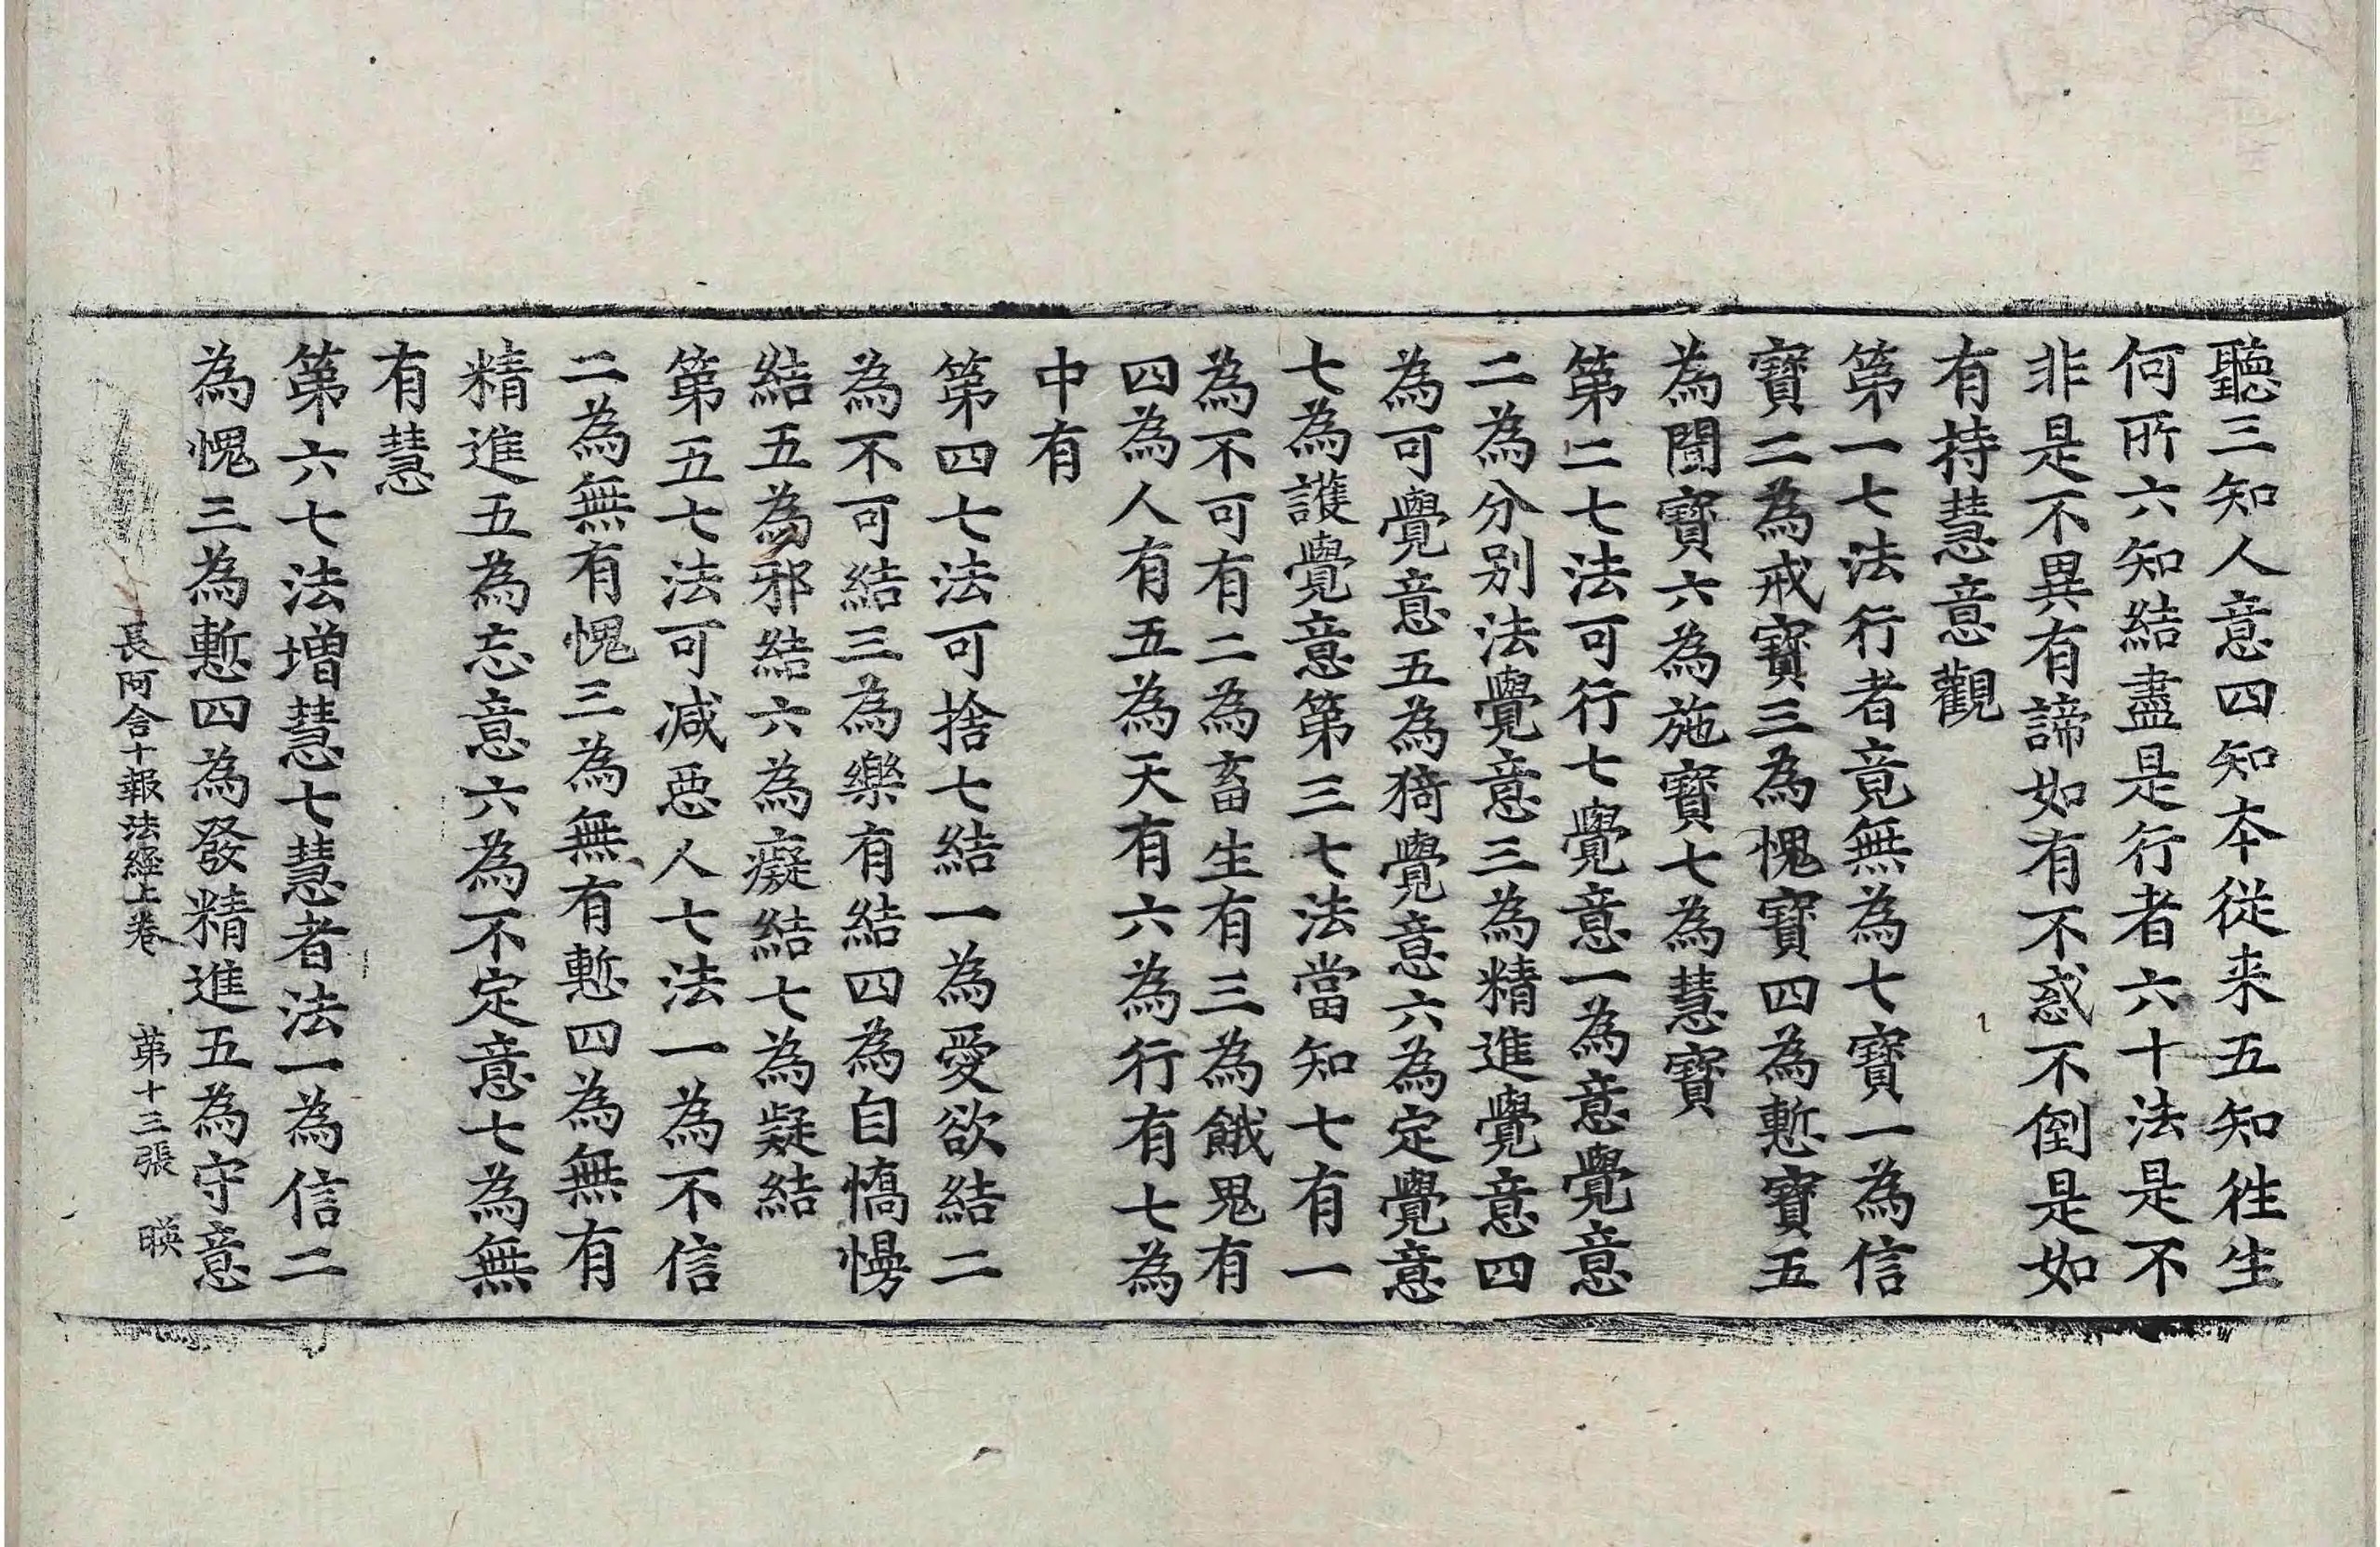 聽三知人意四知本從来五知徃生
何所六知結盡是行者六十法是不
非是不異有諦如有不惑不倒是如
有持慧意觀
第一七法行者竟無為七寶一為信
寶二為戒寶三為愧寶四為慙寶五
為聞寶六為施寶七為慧寶
第二七法可行七覺意一為意覺意
二為分別法覺意三為精進覺意四
為可覺意五為猗覺意六為定覺意
七為護覺意第三七法當知七有一
為不可有二為畜生有三為餓鬼有
四為人有五為天有六為行有七為
中有
第四七法可捨七結一為愛欲結二
為不可結三為樂有結四為自憍慢
結五為邪結六為癡結七為疑結
第五七法可減惡人七法一為不信
二為無有愧三為無有慙四為無有
精進五為忘意六為不定意七為無
有慧
第六七法増慧七慧者法一為信二
為愧三為慙四為發精進五為守意
長阿含十報法經上卷 第十三張 暎